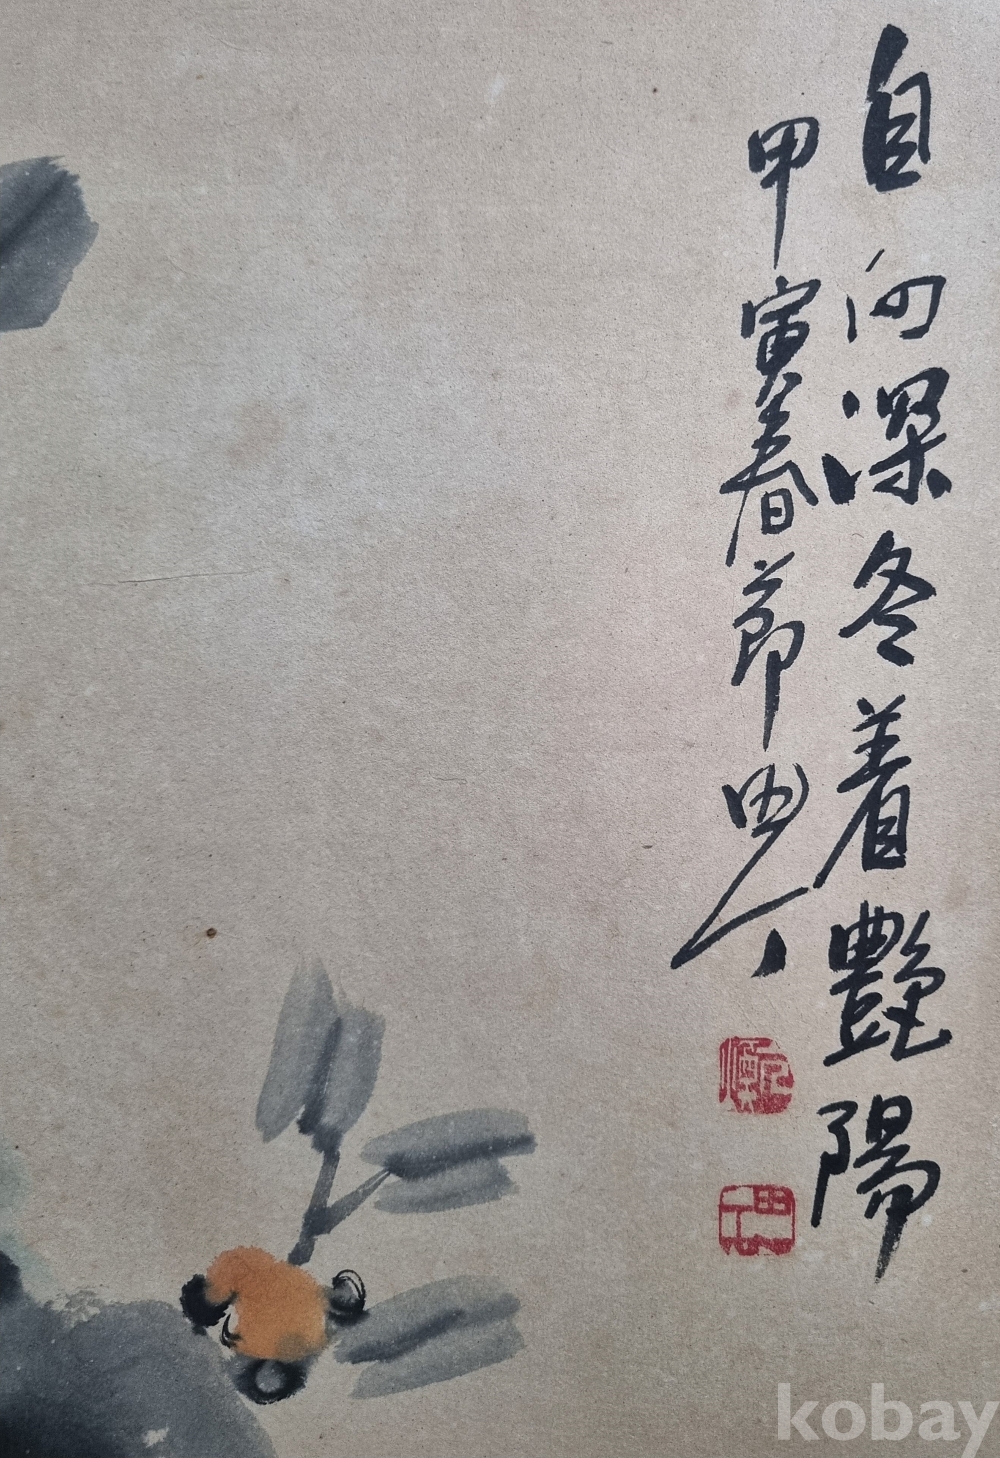 自向深冬着艷陽
甲寅春節思人
kobay